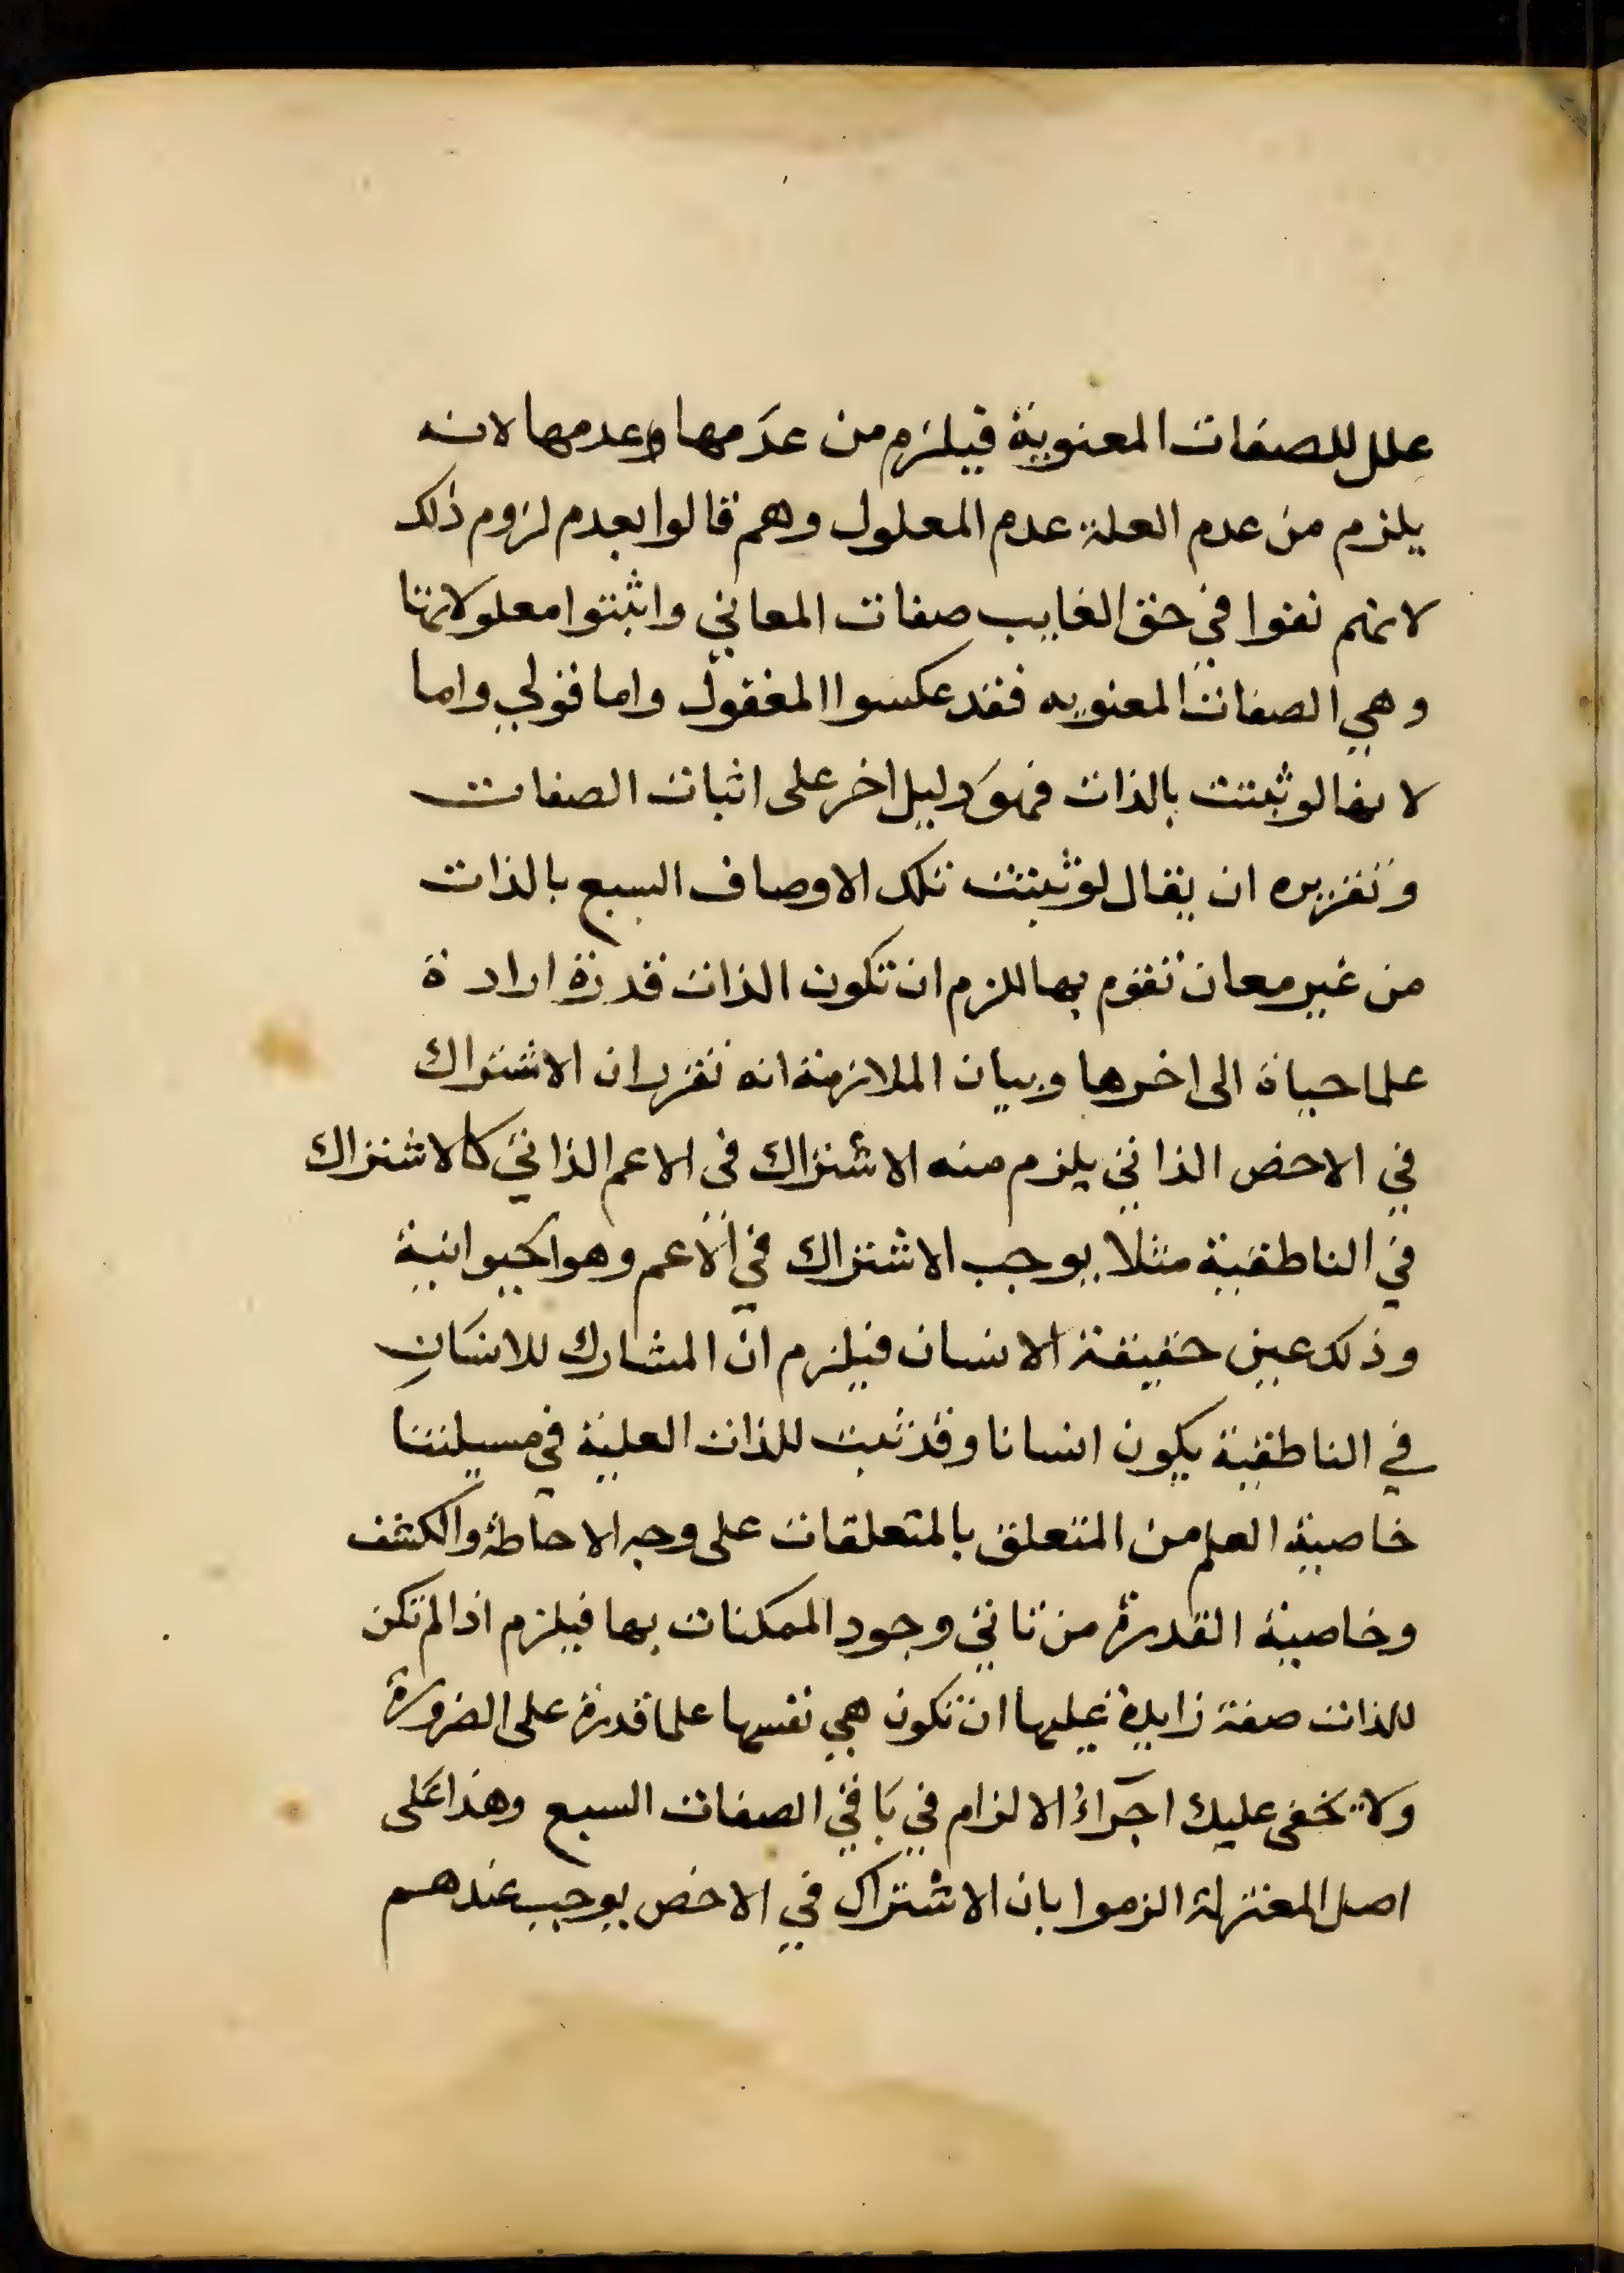 علل للصفات المعنوية فيلزم من عدمها وعدمها لانه
يلزم من عدم العلة عدم المعلول وهم قالوا بعدم لزوم ذلك
لانهم نفوا في حق الغايب صفات المعاني واثبتوا معلولاتها
وهي الصفات المعنويه فقد عكسوا المعقول واما قولي واما
لانها لو ثبتت بالذات فهو دليل اخر على اثبات الصفات
وتقريره ان يقال لو ثبتت تلك الاوصاف السبع بالذات
من غير معان تقوم بها للزم ان تكون الذات قدرة ارادة
علما حياة الى اخرها وبيان الملازمة انه تقرر ان الاشتراك
في الاخص الذاتي يلزم منه الاشتراك في الاعم الذاتي كالاشتراك
في الناطقية مثلا يوجب الاشتراك في الاعم وهو الحيوانية
وذلك عين حقيقة الانسان فيلزم ان المشارك للانسان
في الناطقية يكون انسانا وقد ثبت للذات العلية في مسيلتنا
خاصية العلم من المتعلق بالمتعلقات على وجه الاحاطة والكشف
وخاصية القدرة من تاتي وجود الممكنات بها فيلزم اذا لم تكن
للذات صفة زايدة عليها ان تكون هي نفسها علما قدرة على الضرورة
ولا يخفى عليك اجراء الالزام في باقي الصفات السبع وهذا على
اصل المعتزلة الزموا بان الاشتراك في الاخص يوجب عندهم